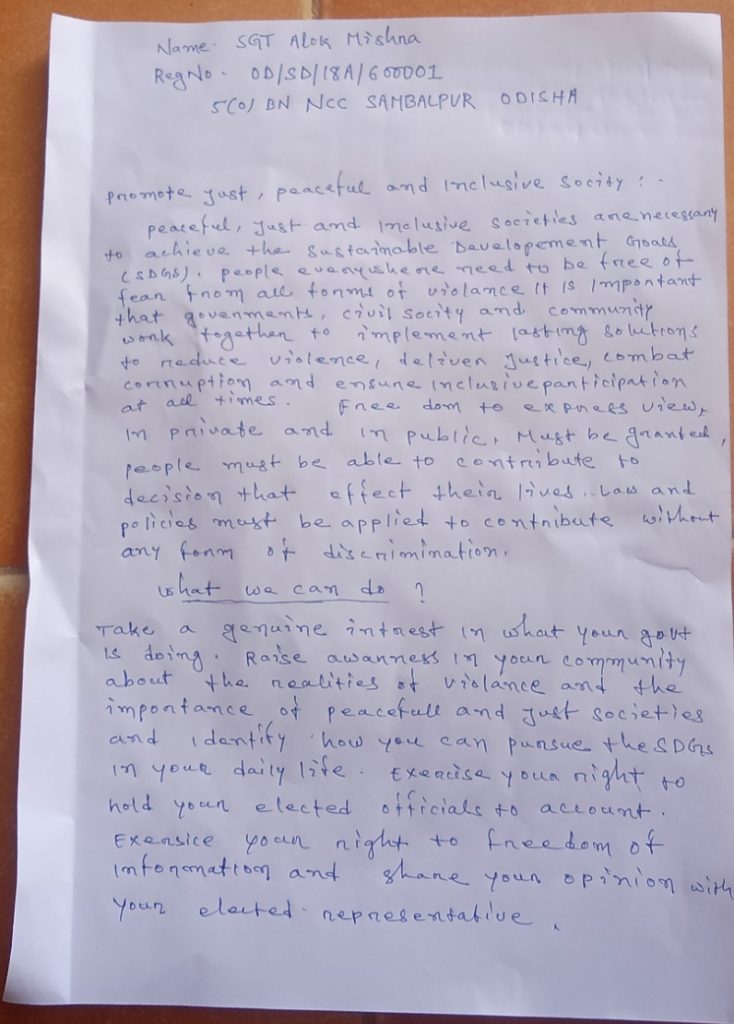 Name. SGT Alok Mishra
Reg No. OD/SD/18A/600001
5(O) BN NCC SAMBALPUR ODISHA
promote Just, peaceful and Inclusive Socity :-
peaceful, Just and Inclusive societies are necessary
to achieve the Sustainable Developement Goals
(SDGS). people everywhere need to be free of
fear from all forms of violance It is Important
that govenments, civil socity and community
work together to implement lasting solutions
to reduce violence, deliver Justice, combat
corruption and ensure inclusive participation
at all times. Free dom to express view,
In private and in public, Must be granted,
people must be able to contribute to
decision that effect their lives.. Law and
policies must be applied to contribute without
any form of discrimination.
What we can do ?
Take a genuine intrest in what your govt
is doing. Raise awarness in your community
about the realities of violance and the
importance of peacefull and Just societies
and identify how you can pursue the SDGs
in your daily life. Exercise your right to
hold your elected officials to account.
Exersice your right to freedom of
information and share your opinion with
your elected representative.